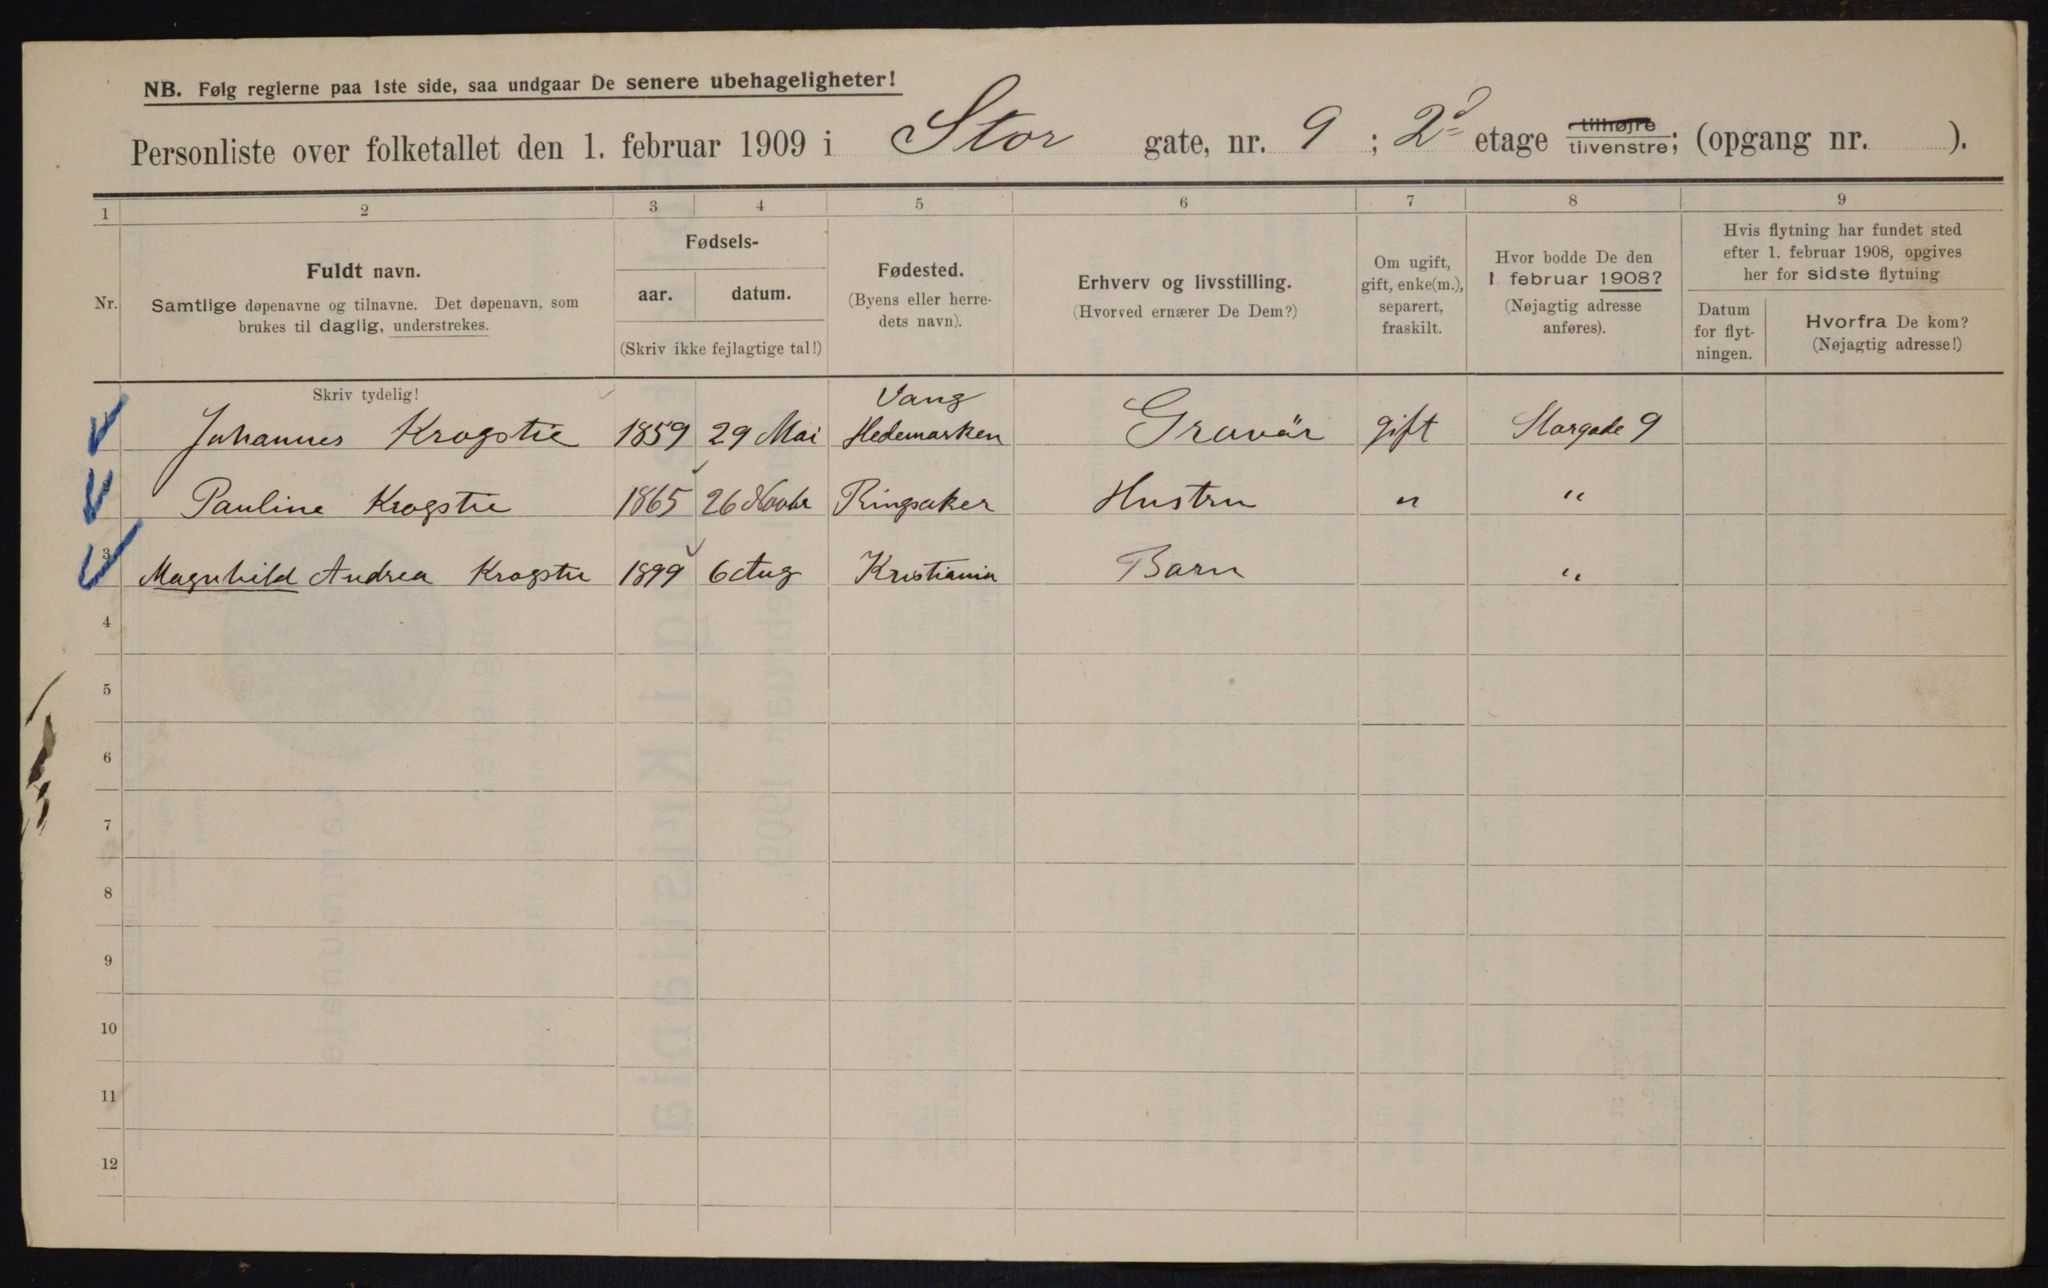 NB. Følg reglerne paa 1ste side, saa undgaar De senere ubehageligheter!
Personliste over folketallet den 1. februar 1909 i Stor gate, nr. 9; 2d etage tilhøjre tilvenstre; (opgang nr. ).
1 2 3 4 5 6 7 8 9
Nr.
Fuldt navn.
Samtlige døpenavne og tilnavne. Det døpenavn, som
brukes til daglig, understrekes.
Fødsels-
aar. datum.
(Skriv ikke fejlagtige tal!)
Fødested.
(Byens eller herre-
dets navn).
Erhverv og livsstilling.
(Hvorved ernærer De Dem?)
Om ugift,
gift, enke(m.),
separert,
fraskilt.
Hvor bodde De den
1. februar 1908?
(Nøjagtig adresse
anføres).
Hvis flytning har fundet sted
efter 1. februar 1908, opgives
her for sidste flytning
Datum
for flyt-
ningen.
Hvorfra De kom?
(Nøjagtig adresse!)
Skriv tydelig!
Vang
Johannes Krogstie 1859 29 Mai Hedemarken Gravör gift Storgade 9
Pauline Krogstie 1865 26 Novbr Ringsaker Hustru " "
3 Magnhild Andrea Krogstie 1899 6 Aug Kristiania Barn "
4
5
6
7
8
9
10
11
12